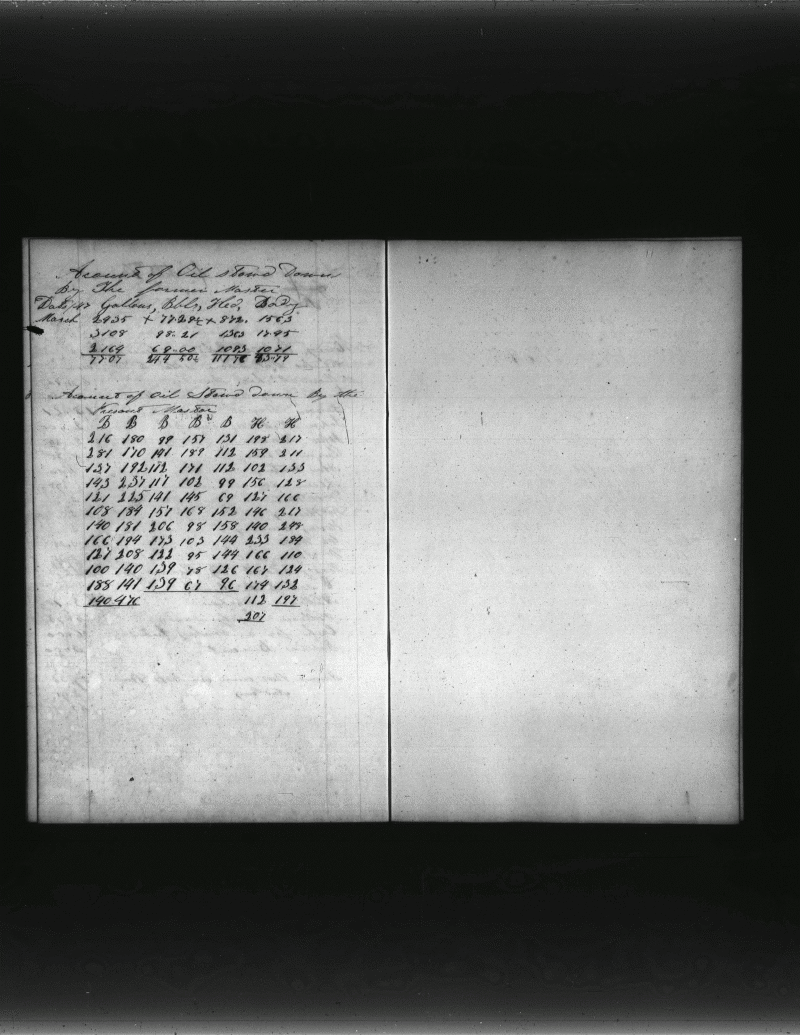 Account of Oil stowd down
By The former Master
Date, 47 Gallons, Bbls, Hed, Body
March 2435 + 77 28½ + 872. 1563
3108 98-21 1363 1745
2169 69-00 1083 1071
7707
Account of Oil Stowd down By the
Present Master
B B B B B H H
216 180 99 157 131 198 217
281 170 141 189 112 159 211
137 192 112 171 112 102 133
143 237 117 102 99 156 128
121 225 141 145 69 127 166
108 184 157 168 152 146 217
140 181 206 98 158 140 248
166 194 173 103 144 233 184
127 208 122 95 144 166 110
100 140 139 78 126 167 124
188 141 139 67 96 174 132
140 476 112 197
207